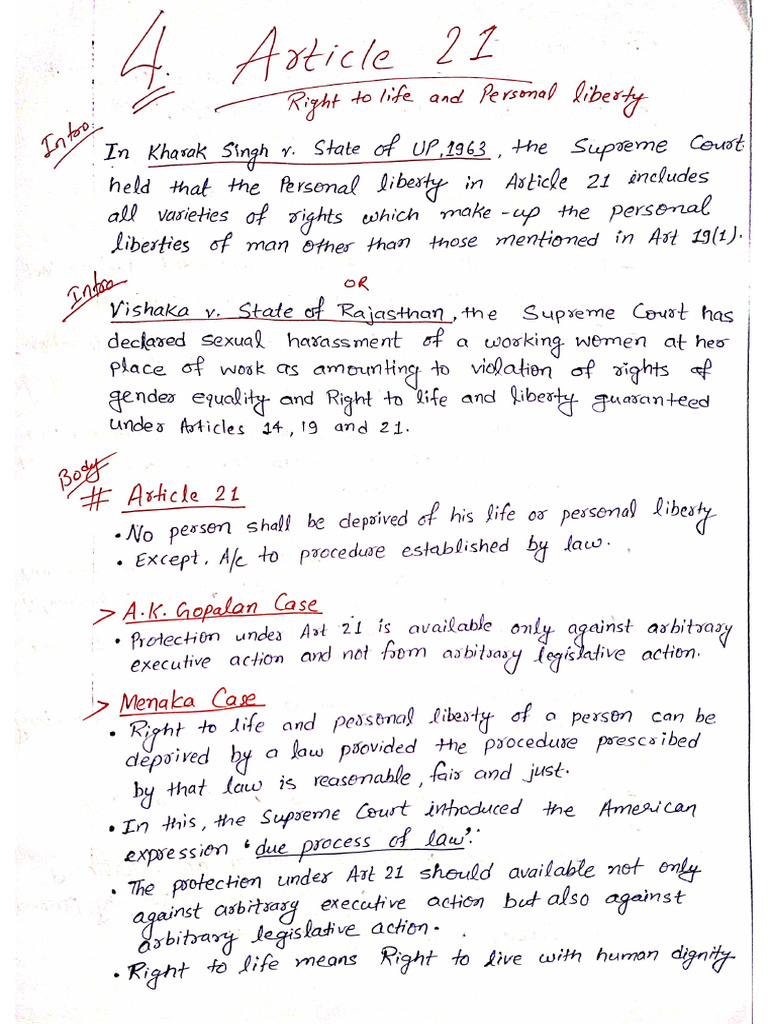 4. Article 21
Right to life and Personal liberty
Intro:
In Kharak Singh v. State of UP, 1963, the Supreme Court
held that the Personal liberty in Article 21 includes
all varieties of rights which make-up the personal
liberties of man other than those mentioned in Art 19(1).
OR
Intro
Vishaka v. State of Rajasthan, the Supreme Court has
declared sexual harassment of a working women at her
place of work as amounting to violation of rights of
gender equality and Right to life and liberty guaranteed
under Articles 14, 19 and 21.
Body
# Article 21
• No person shall be deprived of his life or personal liberty
• Except. A/c to procedure established by law.
> A.K. Gopalan Case
• Protection under Art 21 is available only against arbitrary
executive action and not from arbitrary legislative action.
> Menaka Case
• Right to life and personal liberty of a person can be
deprived by a law provided the procedure prescribed
by that law is reasonable, fair and just.
• In this, the Supreme Court introduced the American
expression 'due process of law'.
• The protection under Art 21 should available not only
against arbitrary executive action but also against
arbitrary legislative action.
• Right to life means Right to live with human dignity